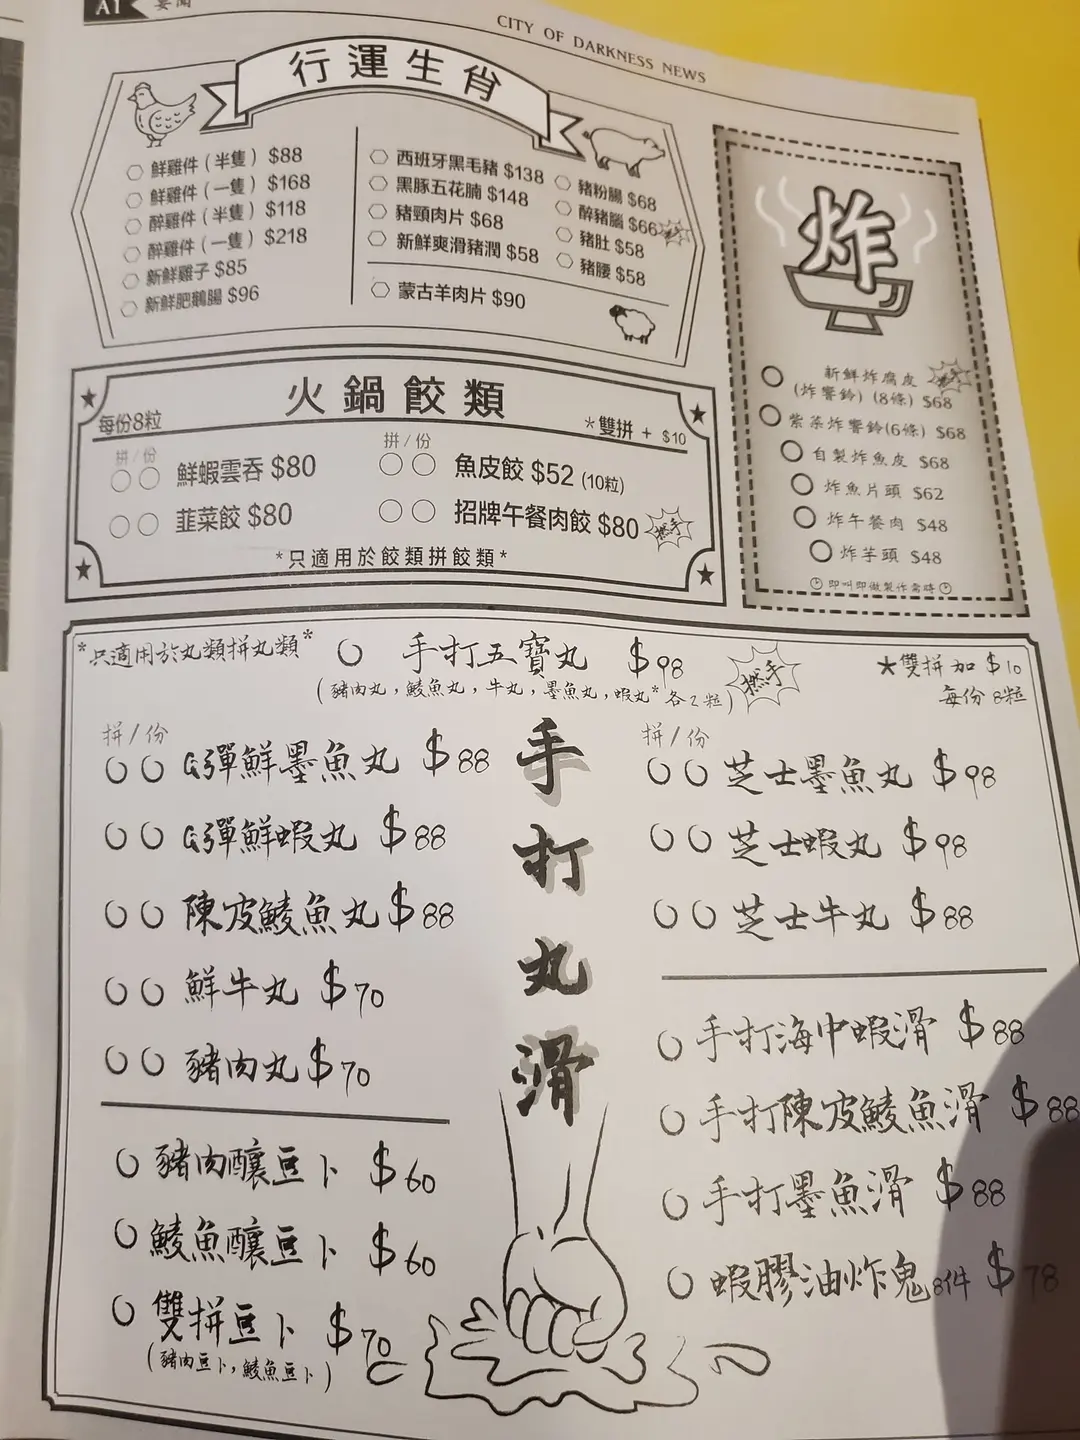 A1 要聞
CITY OF DARKNESS NEWS
行運生肖
鮮雞件（半隻）$88
鮮雞件（一隻）$168
醉雞件（半隻）$118
醉雞件（一隻）$218
新鮮雞子 $85
新鮮肥鵝腸 $96
西班牙黑毛豬 $138
黑豚五花腩 $148
豬頸肉片 $68
新鮮爽滑豬潤 $58
豬粉腸 $68
醉豬腦 $66
豬肚 $58
豬腰 $58
蒙古羊肉片 $90
炸
新鮮炸腐皮
(炸響鈴) (8條) $68
紫菜炸響鈴(6條) $68
自製炸魚皮 $68
炸魚片頭 $62
炸午餐肉 $48
炸芋頭 $48
即叫即做製作需時
火鍋餃類
每份8粒
*雙拼 + $10
拼/份
鮮蝦雲吞 $80
韮菜餃 $80
拼/份
魚皮餃 $52 (10粒)
招牌午餐肉餃 $80
*只適用於餃類拼餃類*
*只適用於丸類拼丸類*
手打五寶丸 $98
(豬肉丸，鯪魚丸，牛丸，墨魚丸，蝦丸*各2粒)
★雙拼加 $10
每份 8粒
手打丸滑
拼/份
G彈鮮墨魚丸 $88
G彈鮮蝦丸 $88
陳皮鯪魚丸 $88
鮮牛丸 $70
豬肉丸 $70
豬肉釀豆卜 $60
鯪魚釀豆卜 $60
雙拼豆卜 $70
(豬肉豆卜，鯪魚豆卜)
拼/份
芝士墨魚丸 $98
芝士蝦丸 $98
芝士牛丸 $88
手打海中蝦滑 $88
手打陳皮鯪魚滑 $88
手打墨魚滑 $88
蝦膠油炸鬼8件 $78